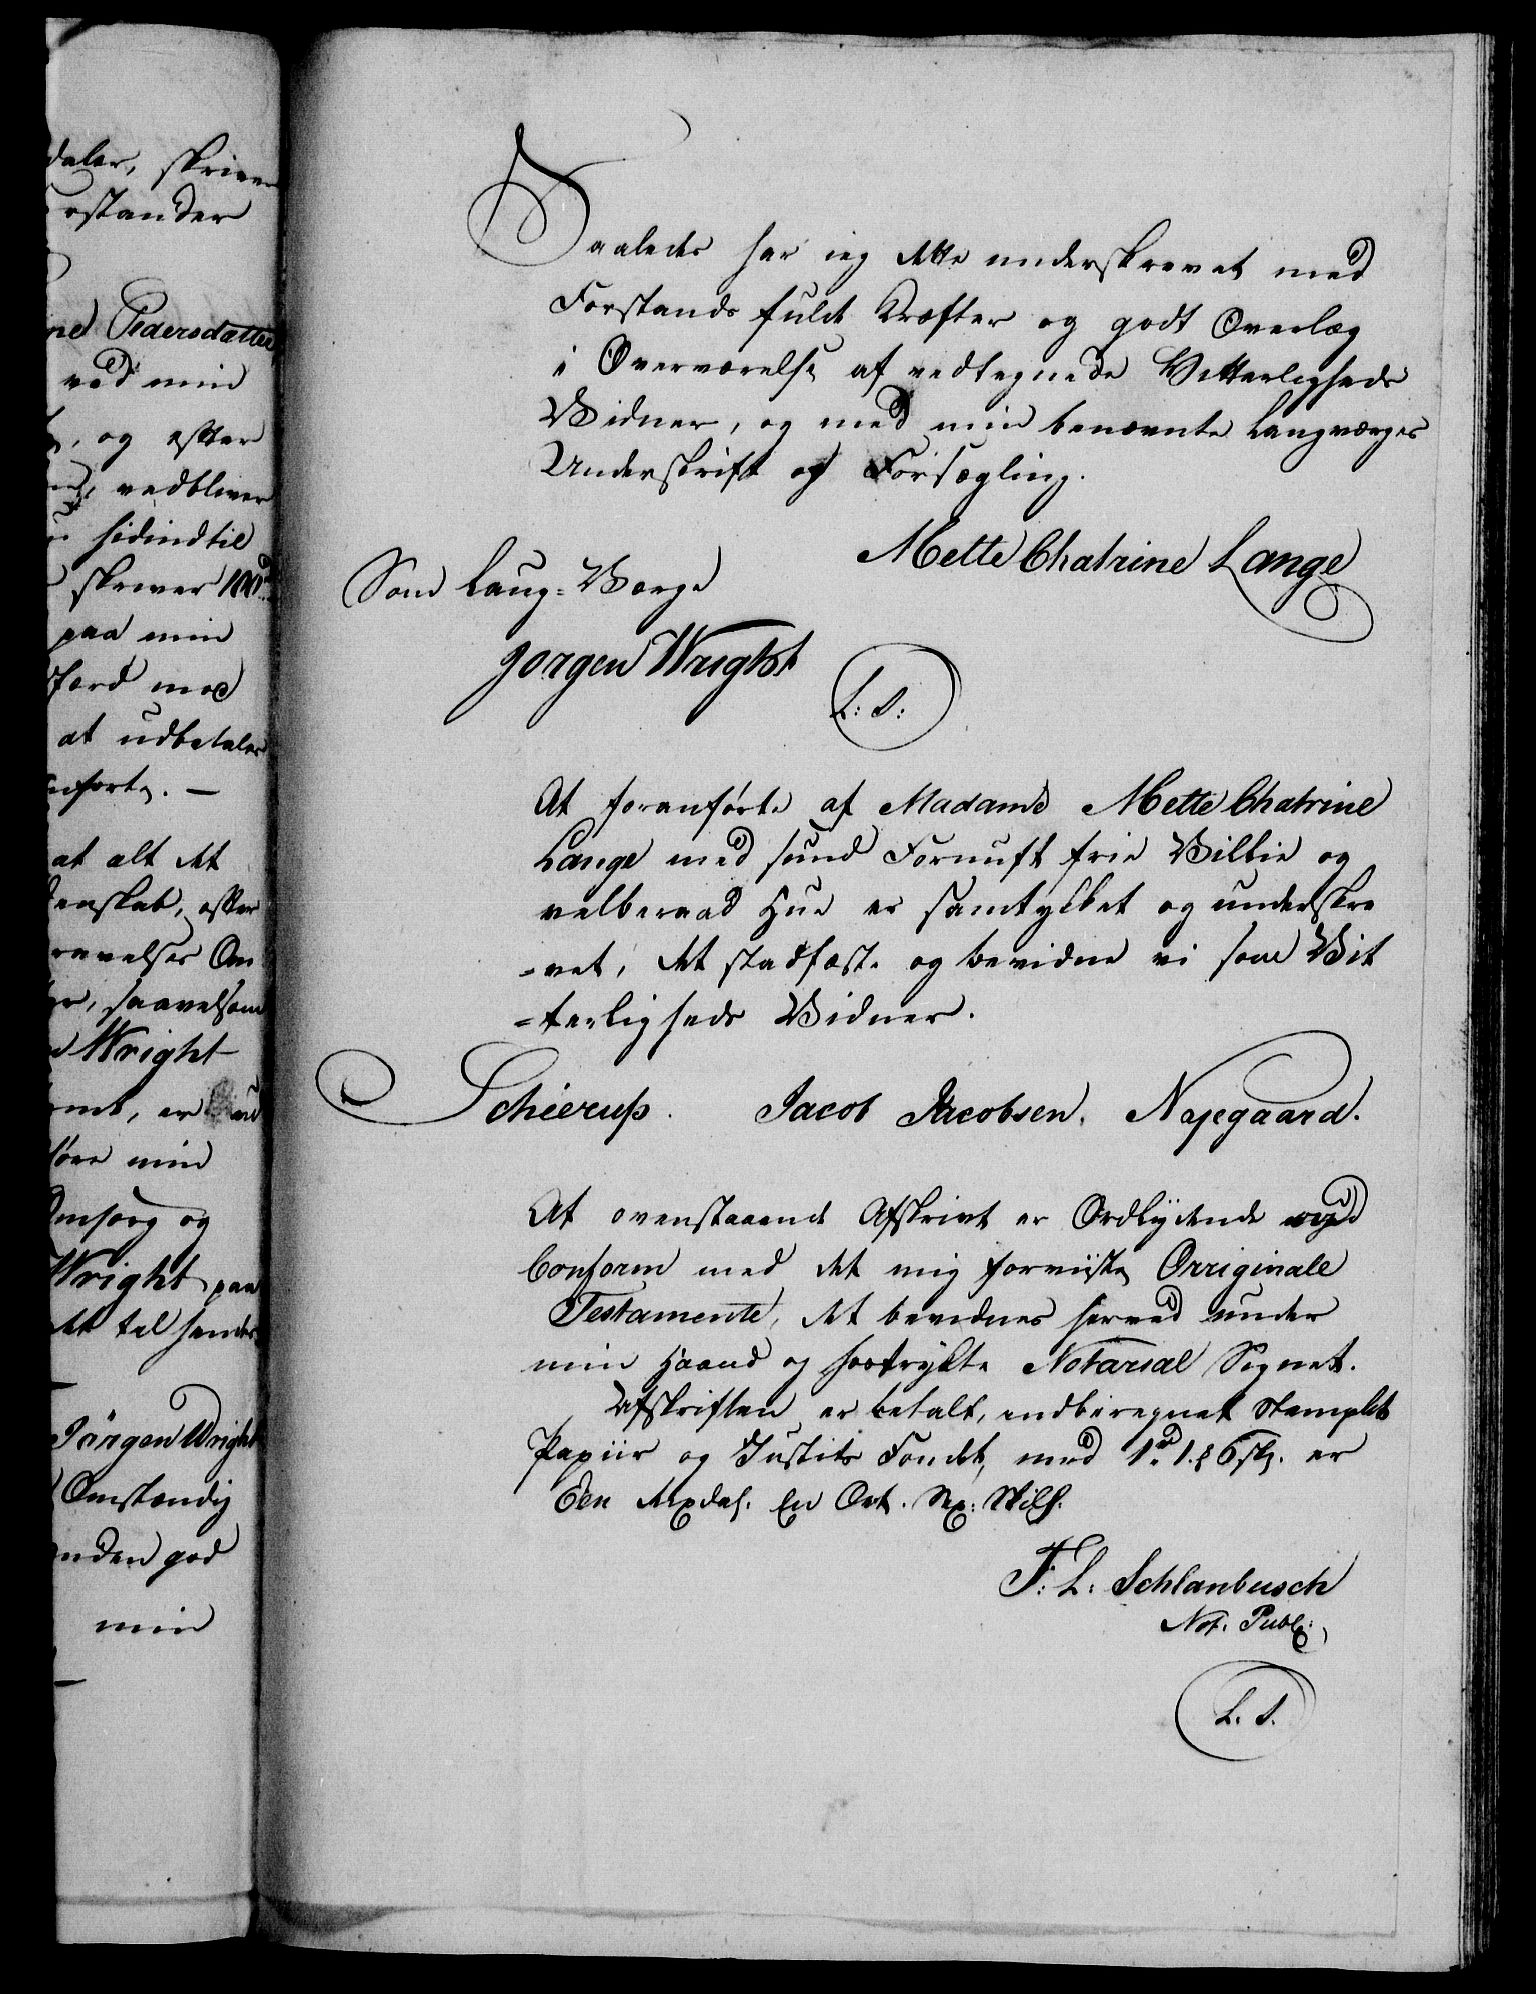 daler, skriver
rstander
ne Pedersdatter
ved min
, og efter
vedbliver
hidindtil
skriver 100
paa min
færd med
at udbetaler
nførte. —
at alt det
enskab, efter
ravelses Om
, saavelsom
Wright
emt, er
føre min
Omsorg og
Wright paa
det tel hendes
Jörgen Wright
Omstændig
nden god
min
Saaledes har ieg dette underskrevet med
Forstands fulde Kræfter og godt Overlæg
i Overværelse af vedtegnede Vitterligheds
Vidner, og med min benævnte Laugværges
Underskrift og Forsegling.
Mette Chatrine Lange
Som Laug-Værge
Jørgen Wright
L: S:
At foranførte af Madame Mette Chatrine
Lange med sund Fornuft frie Villie og
velberaad Hue er samtykket og underskre
=vet, det stadfæste og bevidne vi som Vit
=terligheds Vidner.
Schierup. Jacob Jacobsen. Nyegaard.
At ovenstaaende Afskrivt er Ordlydende og
Conform med det mig foreviiste Orriginale
Testamente, det bevidnes herved under
min Haand og hostrykte Notarial Segnet.
Afskriften er betalt, indberegnet Stemplet
Papiir og Justits Fondet, med 1rd 1 ƒ 6 sk. er
Een Rixdal. En Ort. Sex: Skill.
F: L: Schlanbusch
Not. Publ:
L. S.